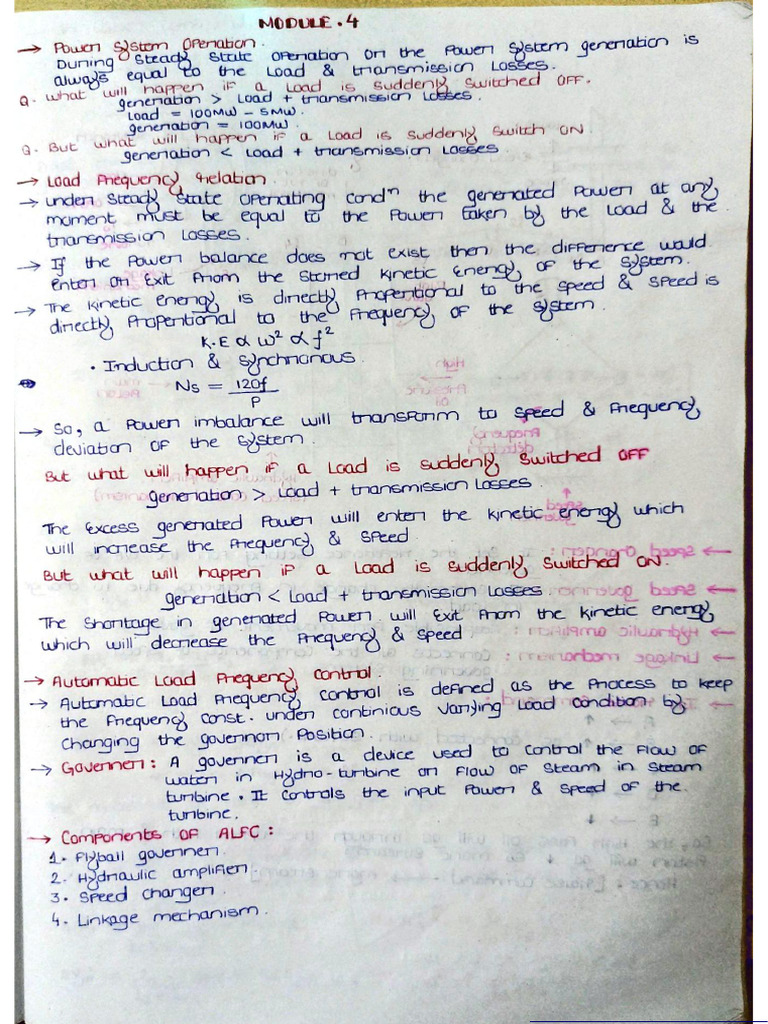 MODULE.4
→ Power System Operation.
During steady state operation on the power system generation is
always equal to the Load & transmission Losses.
Q. What will happen if a Load is suddenly switched off.
generation > Load + transmission Losses.
Load = 100MW - 5MW.
generation = 100MW.
Q. But what will happen if a Load is suddenly switch ON
generation < Load + transmission Losses.
→ Load frequency relation.
→ under steady state operating condⁿ the generated power at any
moment must be equal to the power taken by the load & the
transmission Losses.
→ If the power balance does not exist then the difference would
enter or exit from the stored kinetic energy of the system.
→ The kinetic energy is directly proportional to the speed & speed is
directly proportional to the frequency of the system.
K.E ∝ ω² ∝ f²
• Induction & synchronous.
Ns = 120f / P
→ So, a power imbalance will transform to speed & frequency
deviation of the system.
But what will happen if a Load is suddenly switched OFF
generation > Load + transmission Losses.
The excess generated power will enter the kinetic energy which
will increase the frequency & speed
But what will happen if a Load is suddenly switched ON.
generation < Load + transmission Losses.
The shortage in generated power will exit from the kinetic energy
which will decrease the frequency & speed
→ Automatic Load frequency control.
→ Automatic Load frequency control is defined as the process to keep
the frequency const. under continious varying load condition by
changing the governor position.
→ Governer: A governer is a device used to control the flow of
water in Hydro-turbine or flow of steam in steam
turbine. It controls the input power & speed of the
turbine.
→ Components of ALFC:
1. Flyball governer.
2. Hydraulic amplifier.
3. Speed changer.
4. Linkage mechanism.